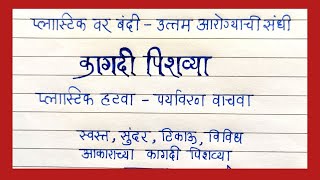 प्लास्टिक वर बंदी - उत्तम आरोग्याची संधी
कागदी पिशव्या
प्लास्टिक हटवा - पर्यावरण वाचवा
स्वस्त, सुंदर, टिकाऊ, विविध
आकाराच्या कागदी पिशव्या